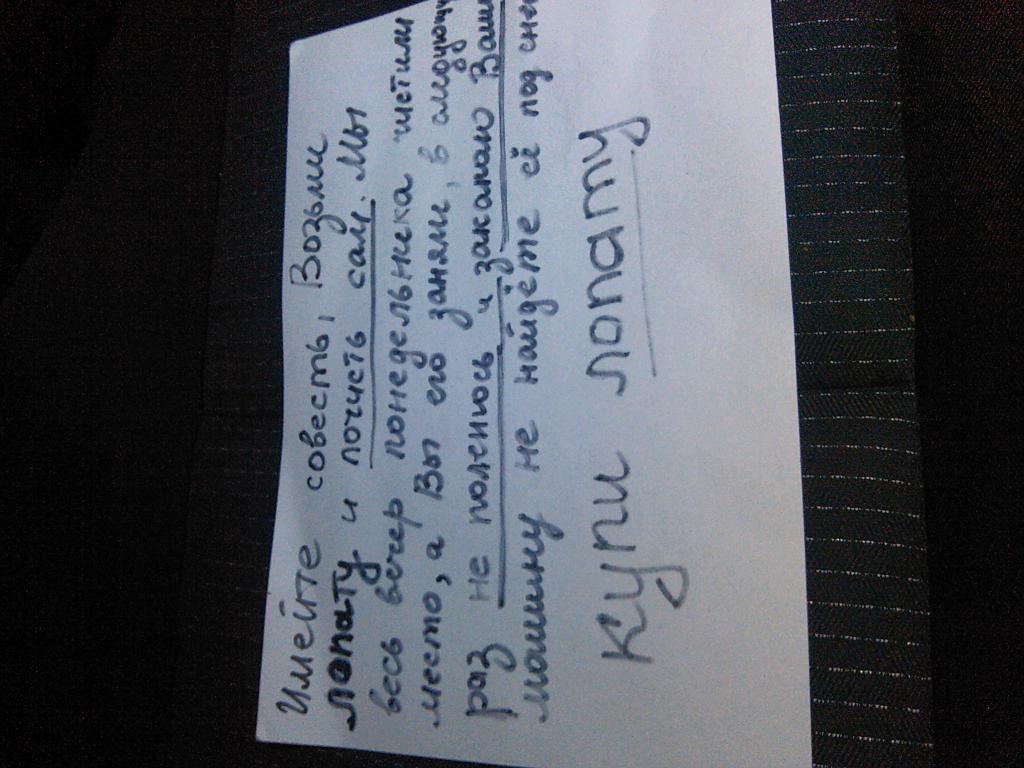 Имейте совесть, Возьми
лопату и почисть сам. Мы
весь вечер понедельника чистили
место, а Вы его заняли, в следующ
раз не поленюсь и закапаю Вашу
машину не найдёте её под сне
Купи лопату